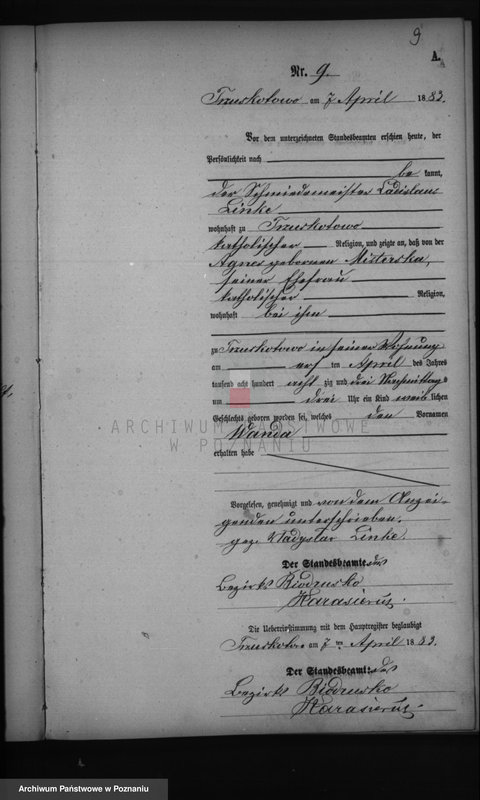 9
A.
Nr. 9.
Truskotowo am 7 April 1883.
Vor dem unterzeichneten Standesbeamten erschien heute, der
Persönlichkeit nach
be kannt,
der Schmiedemeister Ladislaus
Linke
wohnhaft zu Truskotowo
katholischer Religion, und zeigte an, daß von der
Agnes geborenen Misterska,
seiner Ehefrau
katholischer Religion,
wohnhaft bei ihm
zu Truskotowo in seiner Wohnung
am ten April des Jahres
tausend acht hundert acht zig und drei Vormittags
um drei Uhr ein Kind weib lichen
Geschlechts geboren worden sei, welches den Vornamen
Wanda
erhalten habe
ARCHIWUM PAŃSTWOWE
W POZNANIU
Vorgelesen, genehmigt und von dem Anzei-
genden unterschrieben.
gez. Wladyslav Linke.
Der Standesbeamte des
Bezirks Biedrusko
Die Uebereinstimmung mit dem Hauptregister beglaubigt
Truskotowo am 7 ten April 1883.
Der Standesbeamte des
Bezirks Biedrusko
Archiwum Państwowe w Poznaniu